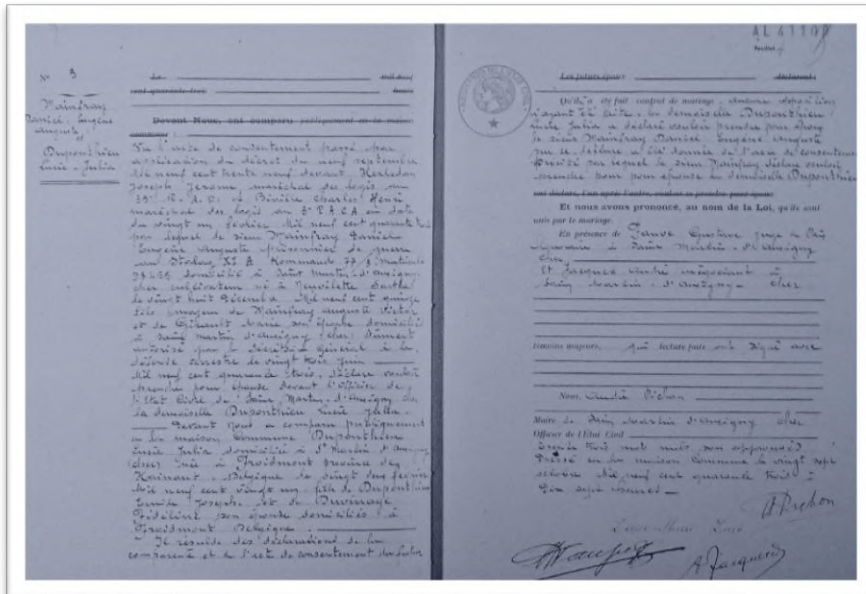 N° 3
Mainfray
Daniel, Eugène
Auguste
et
Duponthieu
Lucie Julia
Le mil neuf
cent quarante trois heures
Devant Nous, ont comparu publiquement en la maison
commune :
Vu l'acte de consentement passé par
application du décret du neuf septembre
Mil neuf cent trente neuf devant
Joseph Jérome, maréchal des logis au
et Rivière Charles Henri
maréchal des logis au en date
du vingt un février Mil neuf cent quarante trois
par lequel le sieur Mainfray Daniel
Eugène Auguste prisonnier de guerre
au Stalag XI A Kommando 77 matricule
domicilié à Saint Martin d'Auxigny
cher cultivateur né à Neuvillette Sarthe
le vingt huit décembre Mil neuf cent quinze
fils majeur de Mainfray Auguste Victor
et de Marie son épouse domiciliés
à Saint Martin d'Auxigny (cher) dûment
autorisé par le Secrétaire Général à la
défense terrestre le vingt trois juin
Mil neuf cent quarante trois, déclare vouloir
prendre pour épouse devant l'Officier de
l'Etat Civil de Saint Martin d'Auxigny cher
la demoiselle Duponthieu Lucie Julia.
Devant Nous a comparu publiquement
en la maison Commune Duponthieu
Lucie Julia domicilié à St Martin d'Auxigny
(cher) née à Froidmont province de
Hainaut, Belgique le vingt deux février
Mil neuf cent vingt un fille de Duponthieu
Emile Joseph et de Duvinage
son épouse domiciliés à
Froidmont Belgique.
Il résulte des déclarations de la
comparente et de l'acte de consentement du futur
AL 41109
Les futurs époux déclarent
Qu'il a été fait contrat de mariage. Aucune opposition
n'ayant été faite, la demoiselle Duponthieu
Lucie Julia a déclaré vouloir prendre pour époux
le sieur Mainfray Daniel Eugène Auguste
par lequel le sieur Mainfray déclare vouloir
prendre pour épouse la demoiselle Duponthieu
ont déclaré, l'un après l'autre, vouloir se prendre pour époux
Et nous avons prononcé, au nom de la Loi, qu'ils sont
unis par le mariage.
En présence de Gustave juge de Paix
à Saint Martin d'Auxigny
cher
Et Jacques André négociant à
Saint Martin d'Auxigny cher
témoins majeurs, qui lecture faite ont signé avec
Nous, André Pichon
Maire de Saint Martin d'Auxigny cher
Officier de l'Etat Civil
trois mots nuls son approuvés
en la maison Commune le vingt sept
octobre Mil neuf cent quarante trois à
A Pichon
A Jacques